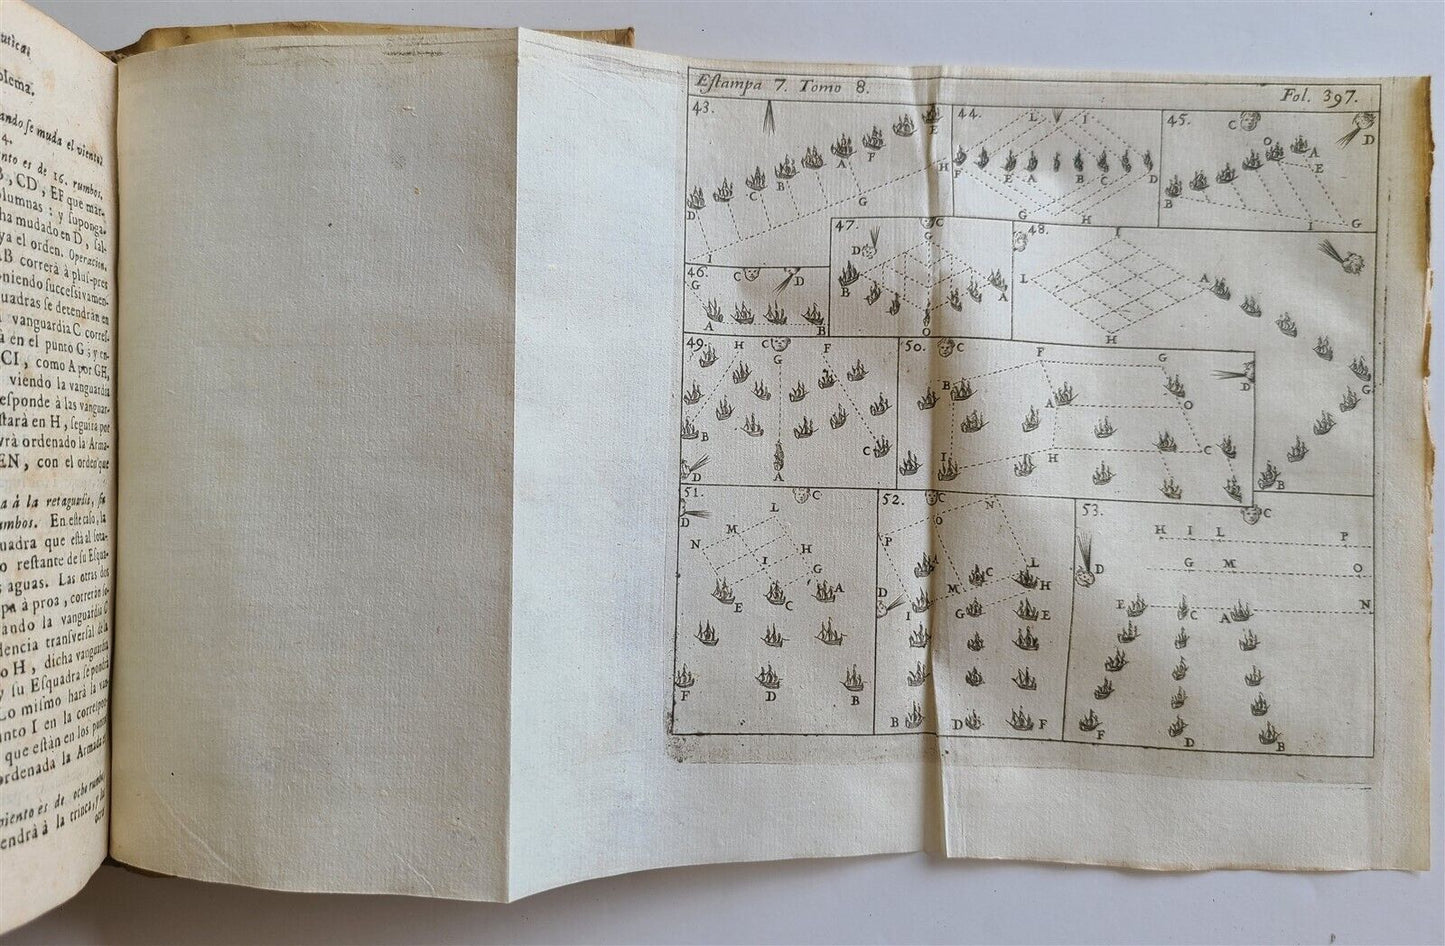 olema.
ando ſe muda el viento
4.
nto es de 16. rumbos,
B, CD, EF que mar-
olumnas: y ſuponga-
ha mudado en D, ſal-
ya el orden. Operacion.
AB correrà à pluſ-pres
oniendo ſucceſsivamen-
quadras ſe detendràn en
vanguardia C correſ-
à en el punto G; y en-
CI, como A por GH,
viendo la vanguardia
eſponde à las vanguar-
ſtarà en H, ſeguirà por
vrà ordenado la Arma-
EN, con el orden que
a à la retaguardia, ſu
umbos. En eſte caſo, la
uadra que eſtà al ſota-
o reſtante de ſu Eſqua-
s aguas. Las otras dos
pa à proa, correràn
ando la vanguardia C
dencia tranſverſal de la
o H, dicha vanguardia
y ſu Eſquadra ſe pondrà
Lo miſmo harà la van-
unto I en la correſpon-
que eſtàn en los puntos
ordenada la Armada
viento es de ocho rumbos,
endrà à la trinca,
Eſtampa 7. Tomo 8.
Fol. 397.
43.
E
F
A
B
C
D
G
H
I
44.
L I
F E A B C D
G H
45.
C
D
O
A
E
B
I
G
46.
C
D
G
A
B
47.
C
G
D
B
A
O
48.
I
L
A
H
G
B
49.
H
C
F
G
B
C
D
A
50.
C
F
G
D
B
A
O
I
H
C
51.
C
D
L
M
N
H
I
G
A
E
C
F
D
B
52.
C
N
O
P
A
C
L
D
M
H
I
G
E
B
D
F
53.
C
H I L P
D
G M O
E
C
A
N
F
D
B